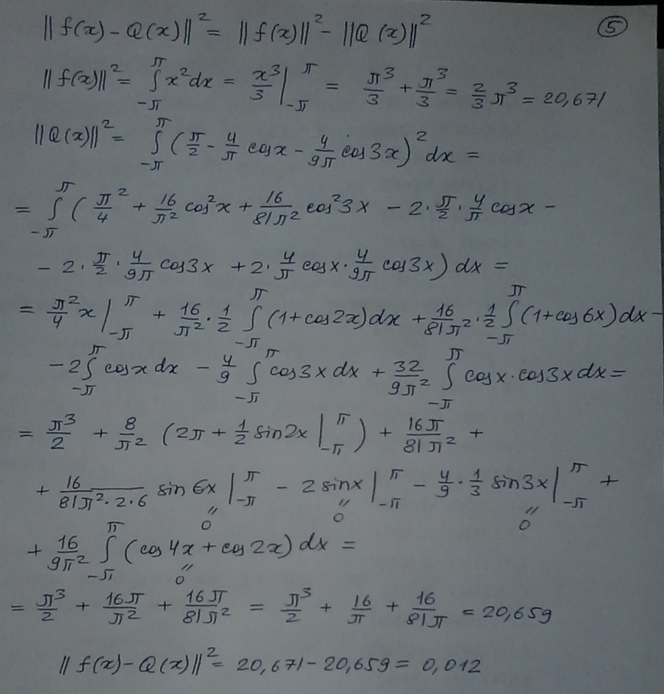 ‖f(x) - Q(x)‖² = ‖f(x)‖² - ‖Q(x)‖² ⑤
‖f(x)‖² = ∫_{-π}^{π} x²dx = x³/3 |_{-π}^{π} = π³/3 + π³/3 = 2/3 π³ = 20,671
‖Q(x)‖² = ∫_{-π}^{π} (π/2 - 4/π cosx - 4/9π cos3x)² dx =
= ∫_{-π}^{π} (π²/4 + 16/π² cos²x + 16/81π² cos²3x - 2·π/2·4/π cosx -
- 2·π/2·4/9π cos3x + 2·4/π cosx·4/9π cos3x) dx =
= π²/4 x |_{-π}^{π} + 16/π²·1/2 ∫_{-π}^{π} (1+cos2x)dx + 16/81π²·1/2 ∫_{-π}^{π} (1+cos6x)dx -
- 2∫_{-π}^{π} cosx dx - 4/9 ∫_{-π}^{π} cos3x dx + 32/9π² ∫_{-π}^{π} cosx·cos3x dx =
= π³/2 + 8/π² (2π + 1/2 sin2x |_{-π}^{π}) + 16π/81π² +
+ 16/81π²·2·6 sin6x |_{-π}^{π} - 2 sinx |_{-π}^{π} - 4/9·1/3 sin3x |_{-π}^{π} +
" 0 " 0 " 0
+ 16/9π² ∫_{-π}^{π} (cos4x + cos2x) dx =
" 0
= π³/2 + 16π/π² + 16π/81π² = π³/2 + 16/π + 16/81π = 20,659
‖f(x) - Q(x)‖² = 20,671 - 20,659 = 0,012